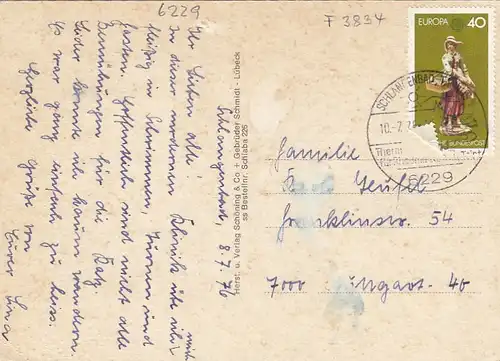 6229
F 3834
Schlangenbad, 8.7.76
Ihr Lieben alle!
In dieser modernen Klinik übe ich mich
fleißig in Schwimmen, Turnen und
Gasten. Hoffentlich sind nicht alle
Bemühungen für die Katz.
Leider konnte ich kaum wandern.
Es war ganz einfach zu heiss.
Herzliche Grüße von
Eurer
Herst. u. Verlag Schöning & Co + Gebrüder Schmidt - Lübeck
ss Bestellnr. Schlaba 225
EUROPA 40
DEUTSCHE BUNDESPOST
SCHLANGENBAD
10.-7.
6229
Familie
Teufel
Franklinstr. 54
7000 Stuttgart-40